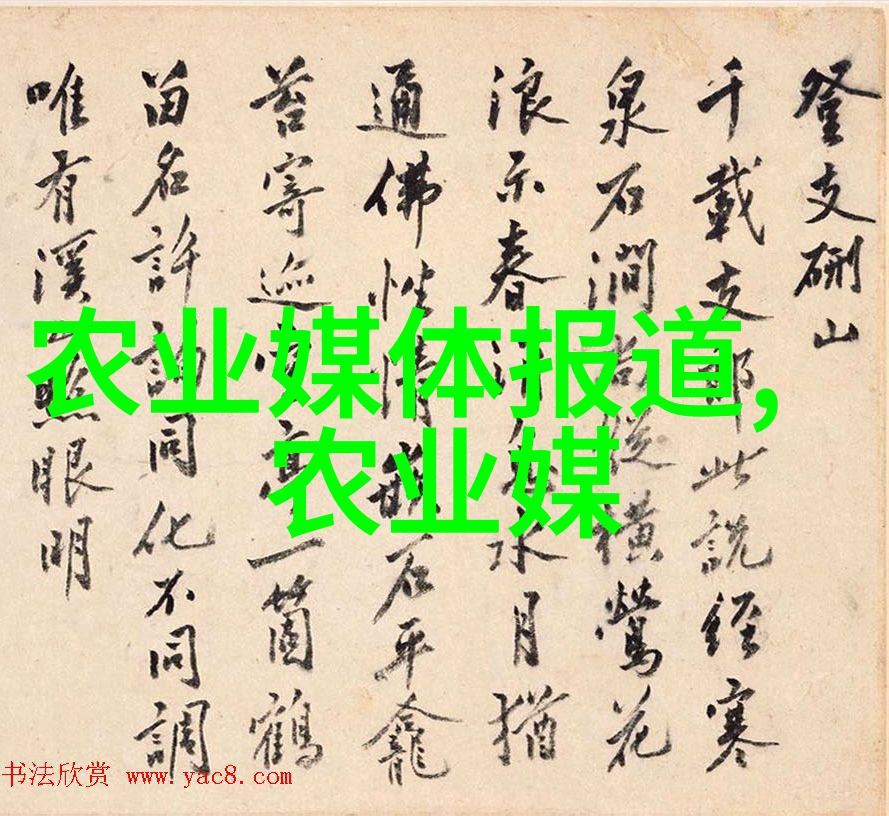 登支硎山
千載支郎此說經寒
泉石澗尚從橫鶯花
浪示春水月猶
通佛性石平龕
苔寄巡亭一箇鶴
留名許詢同化不同調
唯有溪照眼明
农业媒体报道,
农业媒
书法欣赏 www.yac8.com